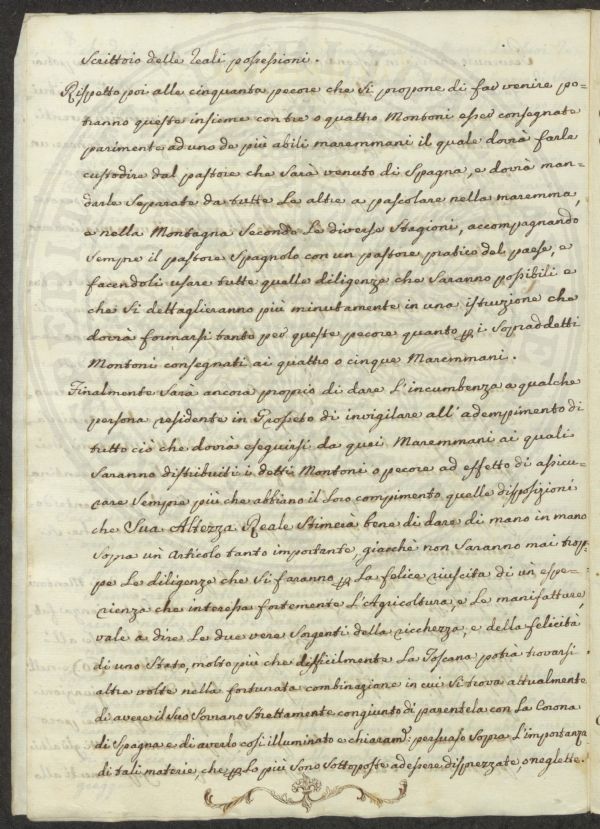 Scrittoio delle Reali possessioni.
Rispetto poi alle cinquanta pecore che si propone di far venire po=
tranno queste insieme con tre o quattro Montoni esser consegnate
parimente ad uno de più abili maremmani il quale dovrà farle
custodire dal pastore che sarà venuto di Spagna, e dovrà man=
darle separate da tutte le altre a pascolare nella maremma,
e nella Montagna secondo le diverse Stagioni, accompagnando
sempre il pastore Spagnolo con un pastore pratico del paese, e
facendoli usare tutte quelle diligenze che saranno possibili e
che si dettaglieranno più minutamente in una istruzione che
dovrà formarsi tanto per queste pecore quanto p i sopraddetti
Montoni consegnati ai quattro o cinque Maremmani.
Finalmente sarà ancora proprio di dare l'incumbenza a qualche
persona residente in Grosseto di invigilare all'adempimento di
tutto ciò che dovrà eseguirsi da quei Maremmani ai quali
saranno distribuiti i detti Montoni o pecore ad effetto di assicu=
rare sempre più che abbiano il loro compimento quelle disposizioni
che Sua Altezza Reale stimerà bene di dare di mano in mano
sopra un Articolo tanto importante, giacchè non saranno mai trop=
pe le diligenze che si faranno p la felice riuscita di un espe=
rienza che interessa fortemente l'Agricoltura, e le manifatture,
vale a dire le due vere sorgenti della ricchezza, e della felicità
di uno Stato, molto più che difficilmente la Toscana potrà trovarsi
altre volte nella fortunata combinazione in cui si trova attualmente
di avere il suo Sovrano strettamente congiunto di parentela con la Corona
di Spagna e di averlo così illuminato e chiaram.: persuaso sopra l'importanza
di tali materie, che p lo più sono sottoposte ad essere disprezzate, o neglette.